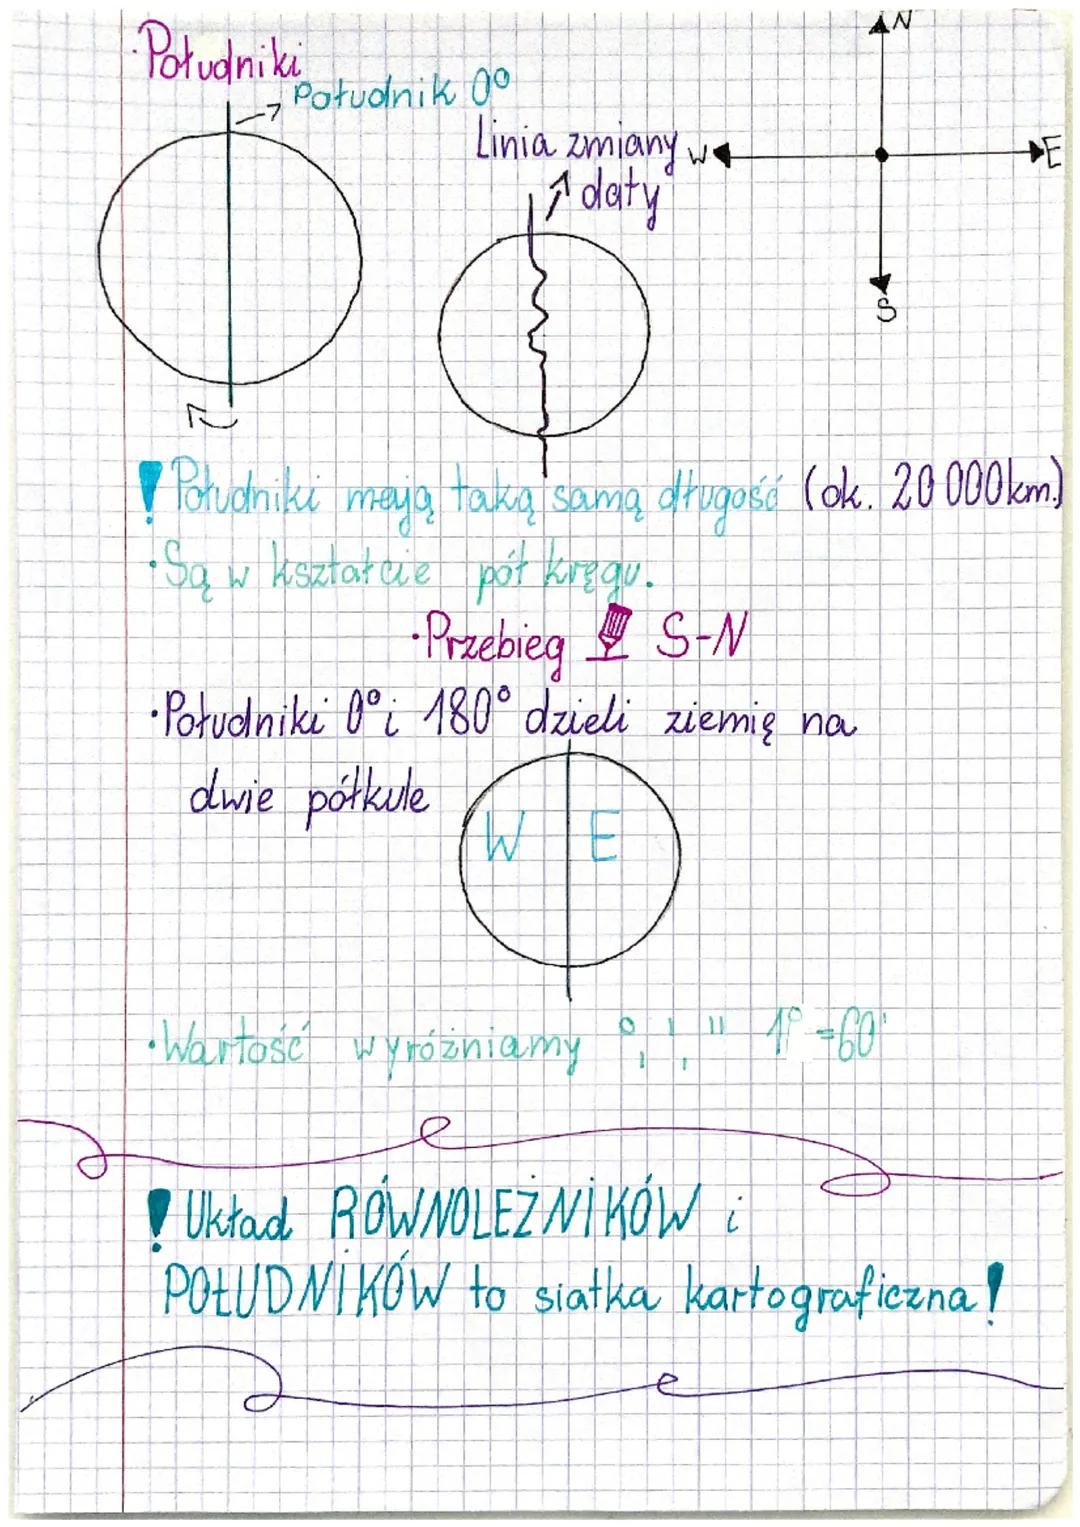 ·Południki
Południk 0°
Linia zmiany
daty
N
W
E
S
! Południki mają taką samą długość (ok. 20 000 km.)
·Są w kształcie pół kręgu.
·Przebieg S-N
·Południki 0° i 180° dzieli ziemię na
dwie półkule
W E
·Wartość wyróżniamy °, ', " 1° = 60'
! Układ RÓWNOLEŻNIKÓW i
POŁUDNIKÓW to siatka kartograficzna!